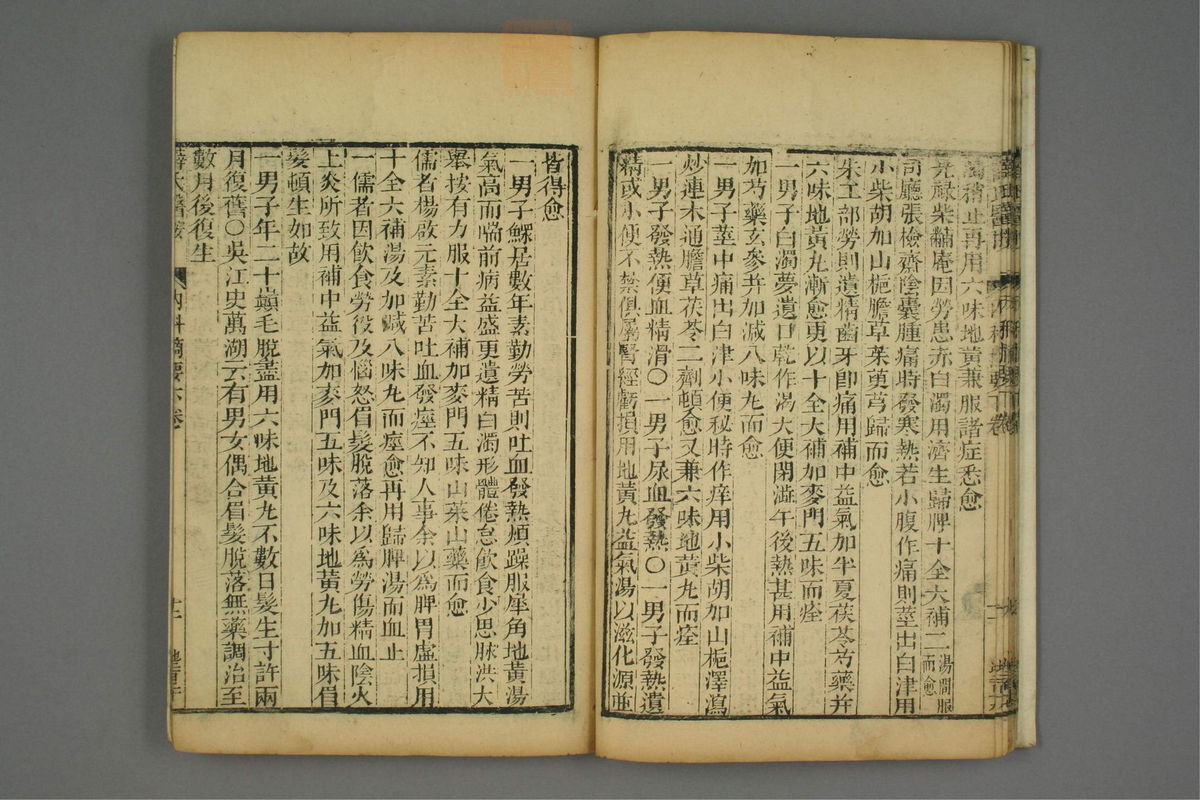 濁稍止再用六味地黃兼服諸症悉愈
光祿柴黼庵因勞患赤白濁用濟生歸脾十全大補二湯間服而愈
司廳張檢齋陰囊腫痛時發寒熱若小腹作痛則莖出白津用
小柴胡加山梔膽草茱萸芎歸而愈
朱工部勞則遺精齒牙即痛用補中益氣加半夏茯苓芍藥并
六味地黃丸漸愈更以十全大補加麥門五味而痊
一男子白濁夢遺口乾作渴大便閉澁午後熱甚用補中益氣
加芍藥玄參并加減八味丸而愈
一男子莖中痛出白津小便秘時作痒用小柴胡加山梔澤瀉
炒連木通膽草茯苓二劑頓愈又兼六味地黃丸而痊
一男子發熱便血精滑〇一男子尿血發熱〇一男子發熱遺
精或小便不禁俱屬腎經虧損用地黃丸益氣湯以滋化源並
皆得愈
一男子鰥居數年素勤勞苦則吐血發熱煩躁服犀角地黃湯
氣高而喘前病益盛更遺精白濁形體倦怠飲食少思脉洪大
舉按有力服十全大補加麥門五味山茱山藥而愈
儒者楊啟元素勤苦吐血發痙不知人事余以爲脾胃虛損用
十全大補湯及加減八味丸而痙愈再用歸脾湯而血止
一儒者因飲食勞役及惱怒眉髮脫落余以爲勞傷精血陰火
上炎所致用補中益氣加麥門五味及六味地黃丸加五味眉
髮頓生如故
一男子年二十巔毛脫盡用六味地黃丸不數日髮生寸許兩
月復舊〇吳江史萬湖云有男女偶合眉髮脫落無藥調治至
數月後復生
薛氏醫按 內科摘要下卷 十二